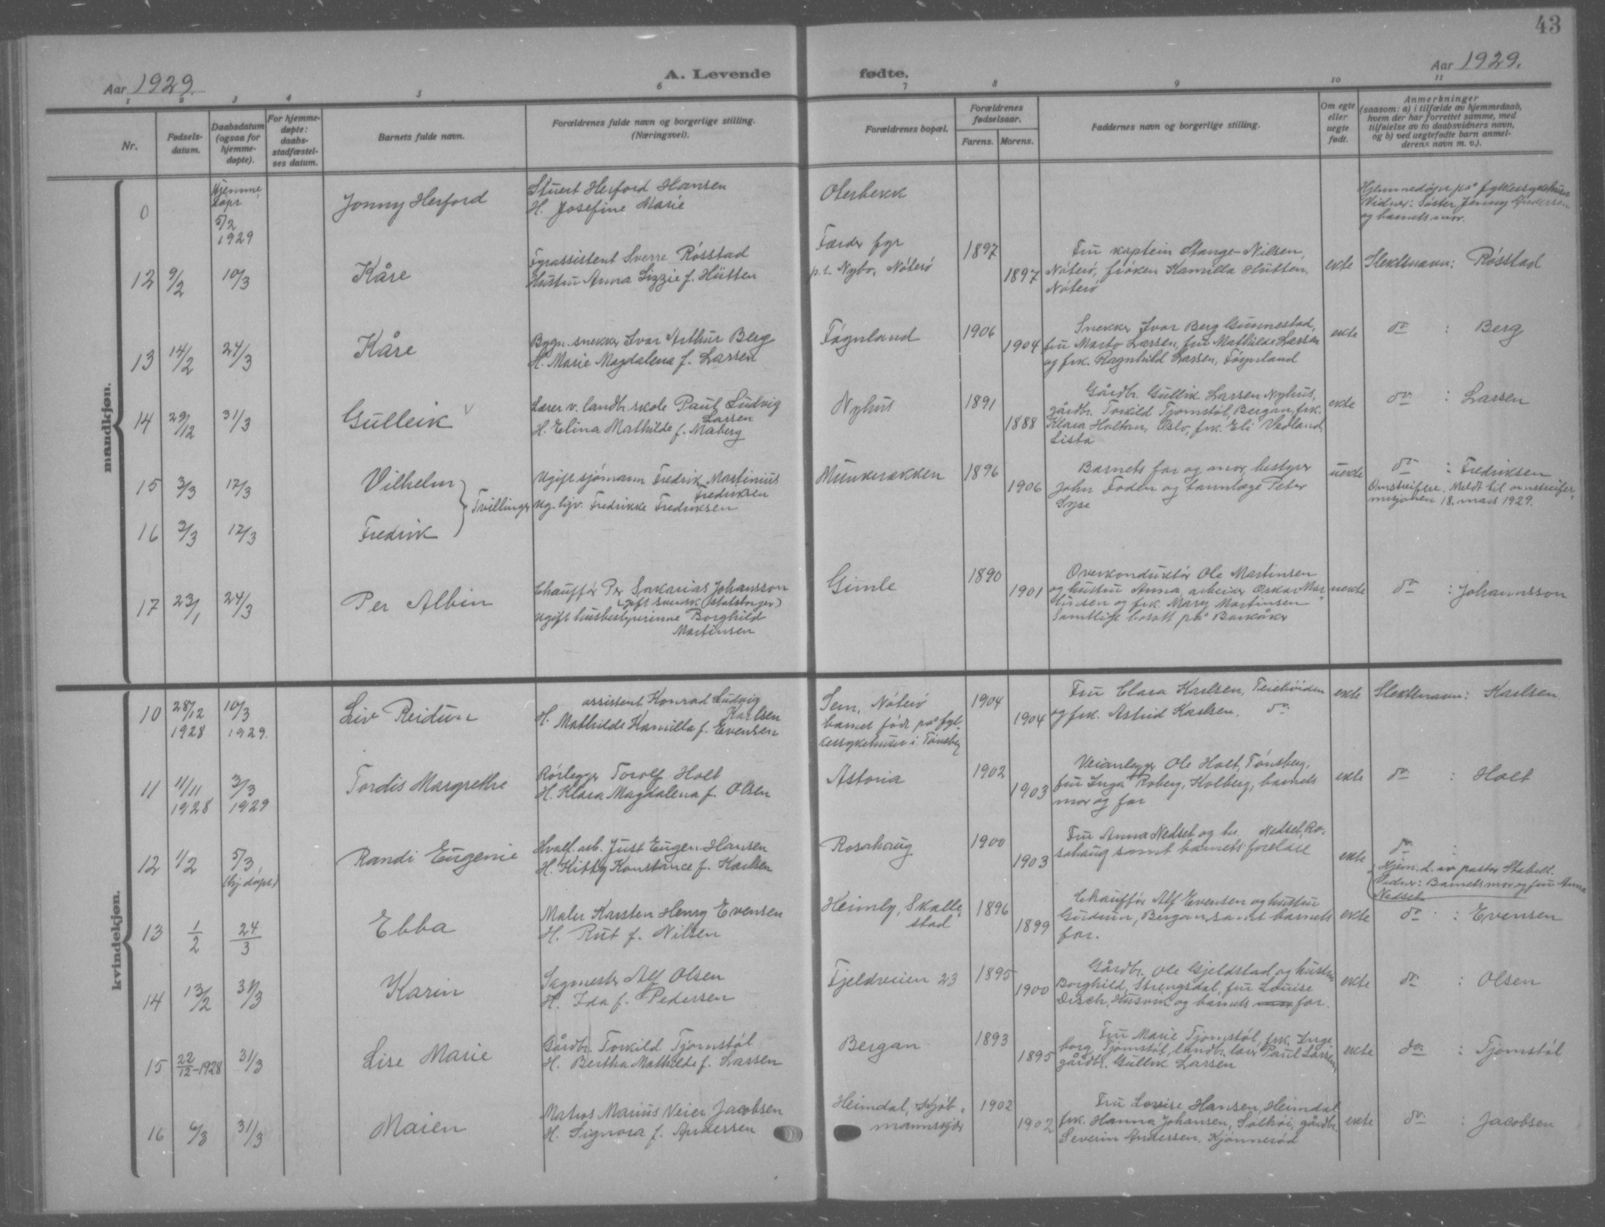 43
Aar 1929.
A. Levende
fødte.
Aar 1929.
1 2 3 4 5 6 7 8 9 10 11
Nr.
Fødsels-
datum.
Daabsdatum
(ogsaa for
hjemme-
døpte).
For hjemme-
døpte:
daabs-
stadfæstel-
ses datum.
Barnets fulde navn.
Forældrenes fulde navn og borgerlige stilling.
(Næringsvei).
Forældrenes bopæl.
Forældrenes
fødselsaar.
Farens. Morens.
Faddernes navn og borgerlige stilling.
Om egte
eller
uegte
født.
Anmerkninger
(saasom: a) i tilfælde av hjemmedaab,
hvem der har forrettet samme, med
tilføielse av to daabsvidners navn,
og b) ved uegtefødte barn anmel-
derens navn m. v.).
mandkjøn.
0
Hjemme
døpt
5/2
1929
Jonny Herford
Stuert Herford Hansen
H. Josefine Marie
Oterbekk
Hjemmedøpt på fylkessykehuset
Vidner: Søster Jenny Andersen
og barnets mor.
12 9/2 10/3
Kåre
Fyrassistent Sverre Røsstad
Hustru Anna Lizzie f. Hütten
Færder fyr
p.t. Nybo, Nøterø
1897
1897
Fru kaptein Stange-Nilsen,
Nøterø, frøken Kamilla Hutton,
Nøterø
ekte
Slektsnavn: Røsstad
13 14/2 24/3
Kåre
Bygn. snekker Ivar Arthur Berg
H. Marie Magdalena f. Larsen
Føynland
1906
1904
Snekker Ivar Berg Gunnestad,
fru Marty Larsen, fru Mathilde Larsen
og frk. Ragnhild Larsen, Føynland
ekte
do : Berg
14 29/12 31/3
Gulleik
Lærer v. landbr. skole Paul Ludvig
Larsen
H. Elina Mathilde f. Maberg
Nyhus
1891
1888
Gårdbr. Gullik Larsen Nyhus,
gårdbr. Torkild Tjomstøl, Bergan, frk.
Klara Holtan, Oslo, frk. Eli Vatland,
Lista
ekte
do : Larsen
15 3/3 17/3
Vilhelm
16 3/3 17/3
Fredrik
Tvillinger
Ugift sjømann Fredrik Martinius
Fredriksen
ug. tjv. Fredrikke Fredriksen
Munkerekken
1896
1906
Barnets far og mor, bestyrer
John Foden og tannlæge Peter
Gyse
uekte
do : Fredriksen
Omstreifere. Meldt til omstreifer-
misjonen 18. mars 1929.
17 23/1 24/3
Per Albin
Chauffør Per Sakarias Johansson
(gift svensk statsborger)
ugift husbestyrerinne Borghild
Martinsen
Gimle
1890
1901
Overkonduktør Ole Martinsen
og hustru Anna, arbeider Oskar Mar-
tinsen og frk. Mary Martinsen
samtlige bosatt på Barkåker
uekte
do : Johannsson
kvindekjøn.
10
28/12
1928
10/3
1929.
Liv Reidun
assistent Konrad Ludvig
Karlsen
H. Mathilde Kamilla f. Evensen
Sem, Nøterø
barnet født på fyl-
kessykehuset i Tønsberg
1904
1904
Fru Clara Karlsen, Teiehøiden
og frk. Astrid Karlsen. do
ekte
Slektsnavn: Karlsen
11
11/11
1928
3/3
1929
Tordis Margrethe
Rørlegger Torolf Holt
H. Klara Magdalena f. Olsen
Astoria
1902
1903
Veianlegger Ole Holt, Tønsberg,
fru Inga Roberg, Holberg, barnets
mor og far
ekte
do : Holt
12 1/2 5/3
(hj. døpt)
Randi Eugenie
Hvalf. arb. Just Eugen Hansen
H. Kitty Konstance f. Karlsen
Rosahaug
1900
1903
Fru Anna Nedset og hr. Nedset, Ro-
sahaug samt barnets foreldre
ekte
do :
Hjem. d. av pastor Stabell.
Vidner: Barnets mor og fru Anna
Nedset.
13 1/2 24/3
Ebba
Maler Karsten Henry Evensen
H. Rut f. Nilsen
Heimly, Skalle-
stad
1896
1899
Chauffør Alf Evensen og hustru
Gudrun, Bergan, samt barnets
far.
ekte
do : Evensen
14 13/2 31/3
Karin
Sagmester Alf Olsen
H. Ida f. Pedersen
Fjeldveien 23
1895
1900
Gårdbr. Ole Gjeldstad og hustru
Borghild, Strengsdal, fru Louise
Dirch, Husvik og barnets far.
ekte
do : Olsen
15 22/12-1928 31/3
Lise Marie
Gårdbr. Torkild Tjomstøl
H. Bertha Mathilde f. Larsen
Bergan
1893
1895
Fru Marie Tjomstøl, frk. Inge-
borg Tjomstøl, landbr. lærer Paul Larsen,
gårdbr. Gullik Larsen
ekte
do : Tjomstøl
16 6/3 31/3
Maien
Matros Marius Veier Jacobsen
H. Signora f. Andersen
Heimdal, Kjøb-
mannskjær
1902
1902
Fru Lovise Hansen, Heimdal
frk. Hanna Johansen, Solhøi, gårdbr.
Severin Andersen, Kjønnerød
ekte
do : Jacobsen